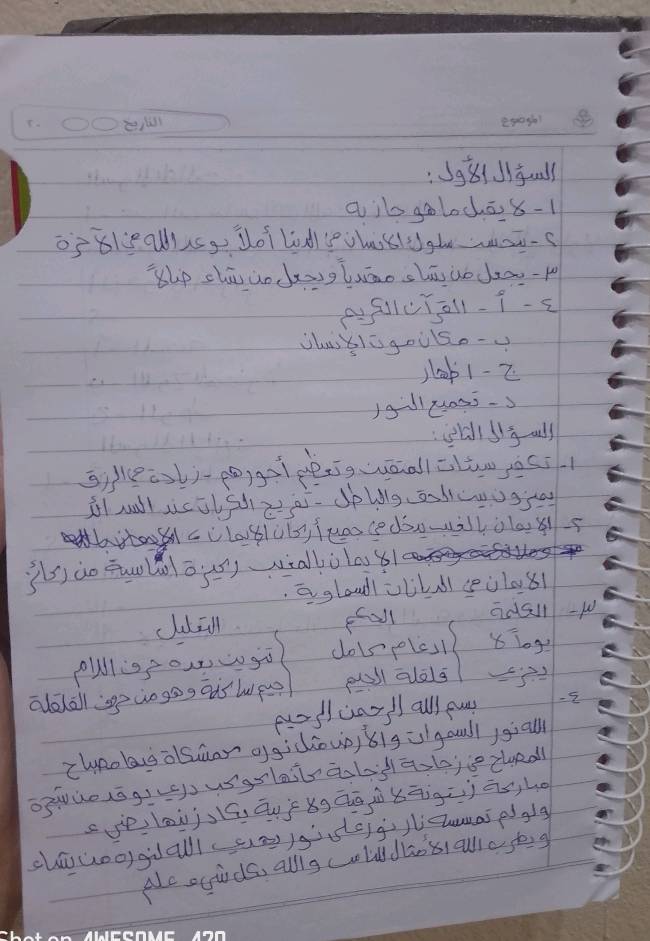 الموضوع التاريخ ٢٠
السؤال الأول:
١- لا يقبل ما هو جاز به
٢- يتحسن سلوك الإنسان في الدنيا أملاً بوعد الله في الآخرة
٣- يجعل من يشاء مهتدياً ويجعل من يشاء ضالاً
٤- أ- القرآن الكريم
ب- مكان موت الإنسان
ج- اظهار
د- تجميع النور
السؤال الثاني:
١- تكفير سيئات المتقين وتعظيم أجورهم - زيادة في الرزق
يميزون بين الحق والباطل - تفريج الكربات عند الشدائد
٢- الإيمان بالغيب يدخل في جميع أركان الإيمان
الإيمان بالغيب ركيزة أساسية من ركائز
الإيمان في الديانات السماوية.
٣- الكلمة الحكم التعليل
يوماً لا ادغام كامل تنوين بعده حرف اللام
يجزي قلقلة الجيم جيم ساكنة وهو من حروف القلقلة
٤- بسم الله الرحمن الرحيم
الله نور السموات والأرض مثل نوره كمشكاة فيها مصباح
المصباح في زجاجة الزجاجة كأنها كوكب دري يوقد من شجرة
مباركة زيتونة لا شرقية ولا غربية يكاد زيتها يضيء
ولو لم تمسسه نار نور على نور يهدي الله لنوره من يشاء
ويضرب الله الأمثال للناس والله بكل شيء علم
Shot on AWESOME A70